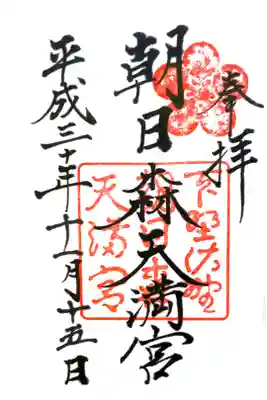 奉拝
朝日森天満宮
平成三十年十一月十五日
下野佐野
天満宮